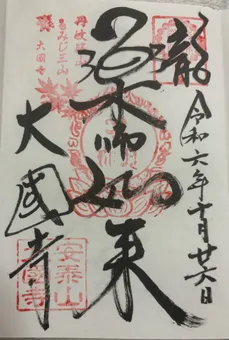 奉拝
令和六年十月廿六日
薬師如来
丹波篠山
もみじ三山
大國寺
大國寺
安泰山
大國寺